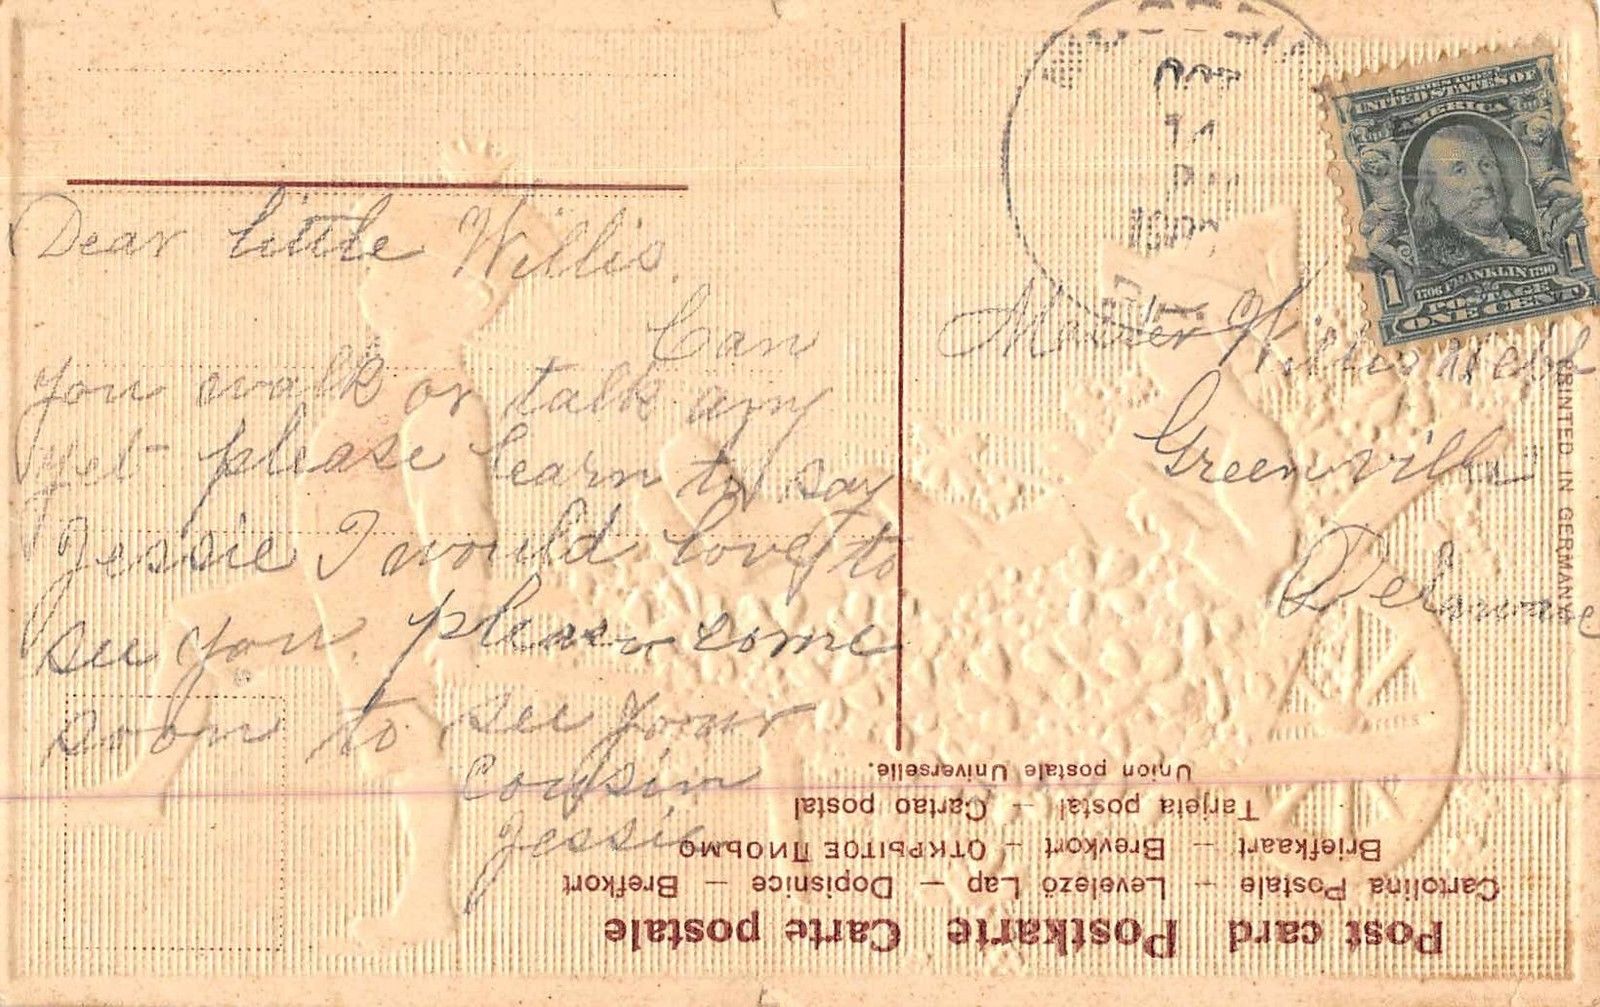 Dear little Willis.
Can
you walk or talk any
yet please learn to say
Jessie I would love to
see you. please come
soon to see your
Cousin
Jessie
SERIES 1902
UNITED STATES OF
AMERICA
1706 FRANKLIN 1790
POSTAGE
1 ONE CENT 1
Master Willis Webb
Greenville
Delaware
PRINTED IN GERMANY
Post card Postkarte Carte postale
Cartolina Postale – Levelező Lap – Dopisnice – Brefkort
Briefkaart – Brevkort – Открытое Письмо
Tarjeta postal – Cartao postal
Union postale Universelle.